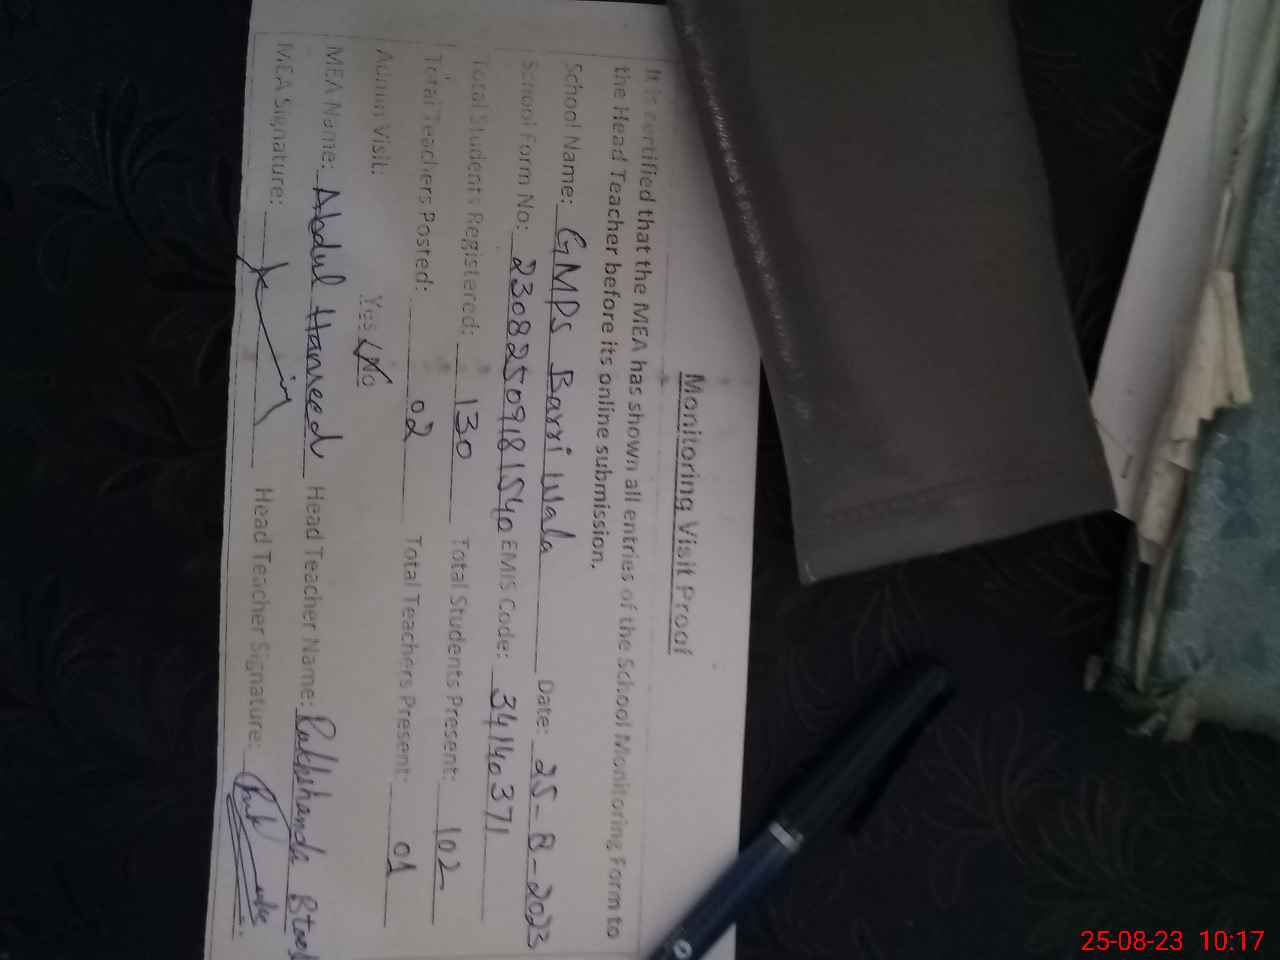 Monitoring Visit Proof
It is certified that the MEA has shown all entries of the School Monitoring Form to
the Head Teacher before its online submission.
School Name: GMPS Barri Wala Date: 25-8-2023
School Form No: 23082509181540 EMIS Code: 34140371
Total Students Registered: 130 Total Students Present: 102
Total Teachers Posted: 02 Total Teachers Present: 01
Admin Visit: Yes / No
MEA Name: Abdul Hameed Head Teacher Name: Rakhshanda
MEA Signature: Head Teacher Signature:
25-08-23 10:17